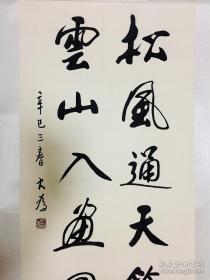 松風通天籟
雲山入畫圖
辛巳三春 大為